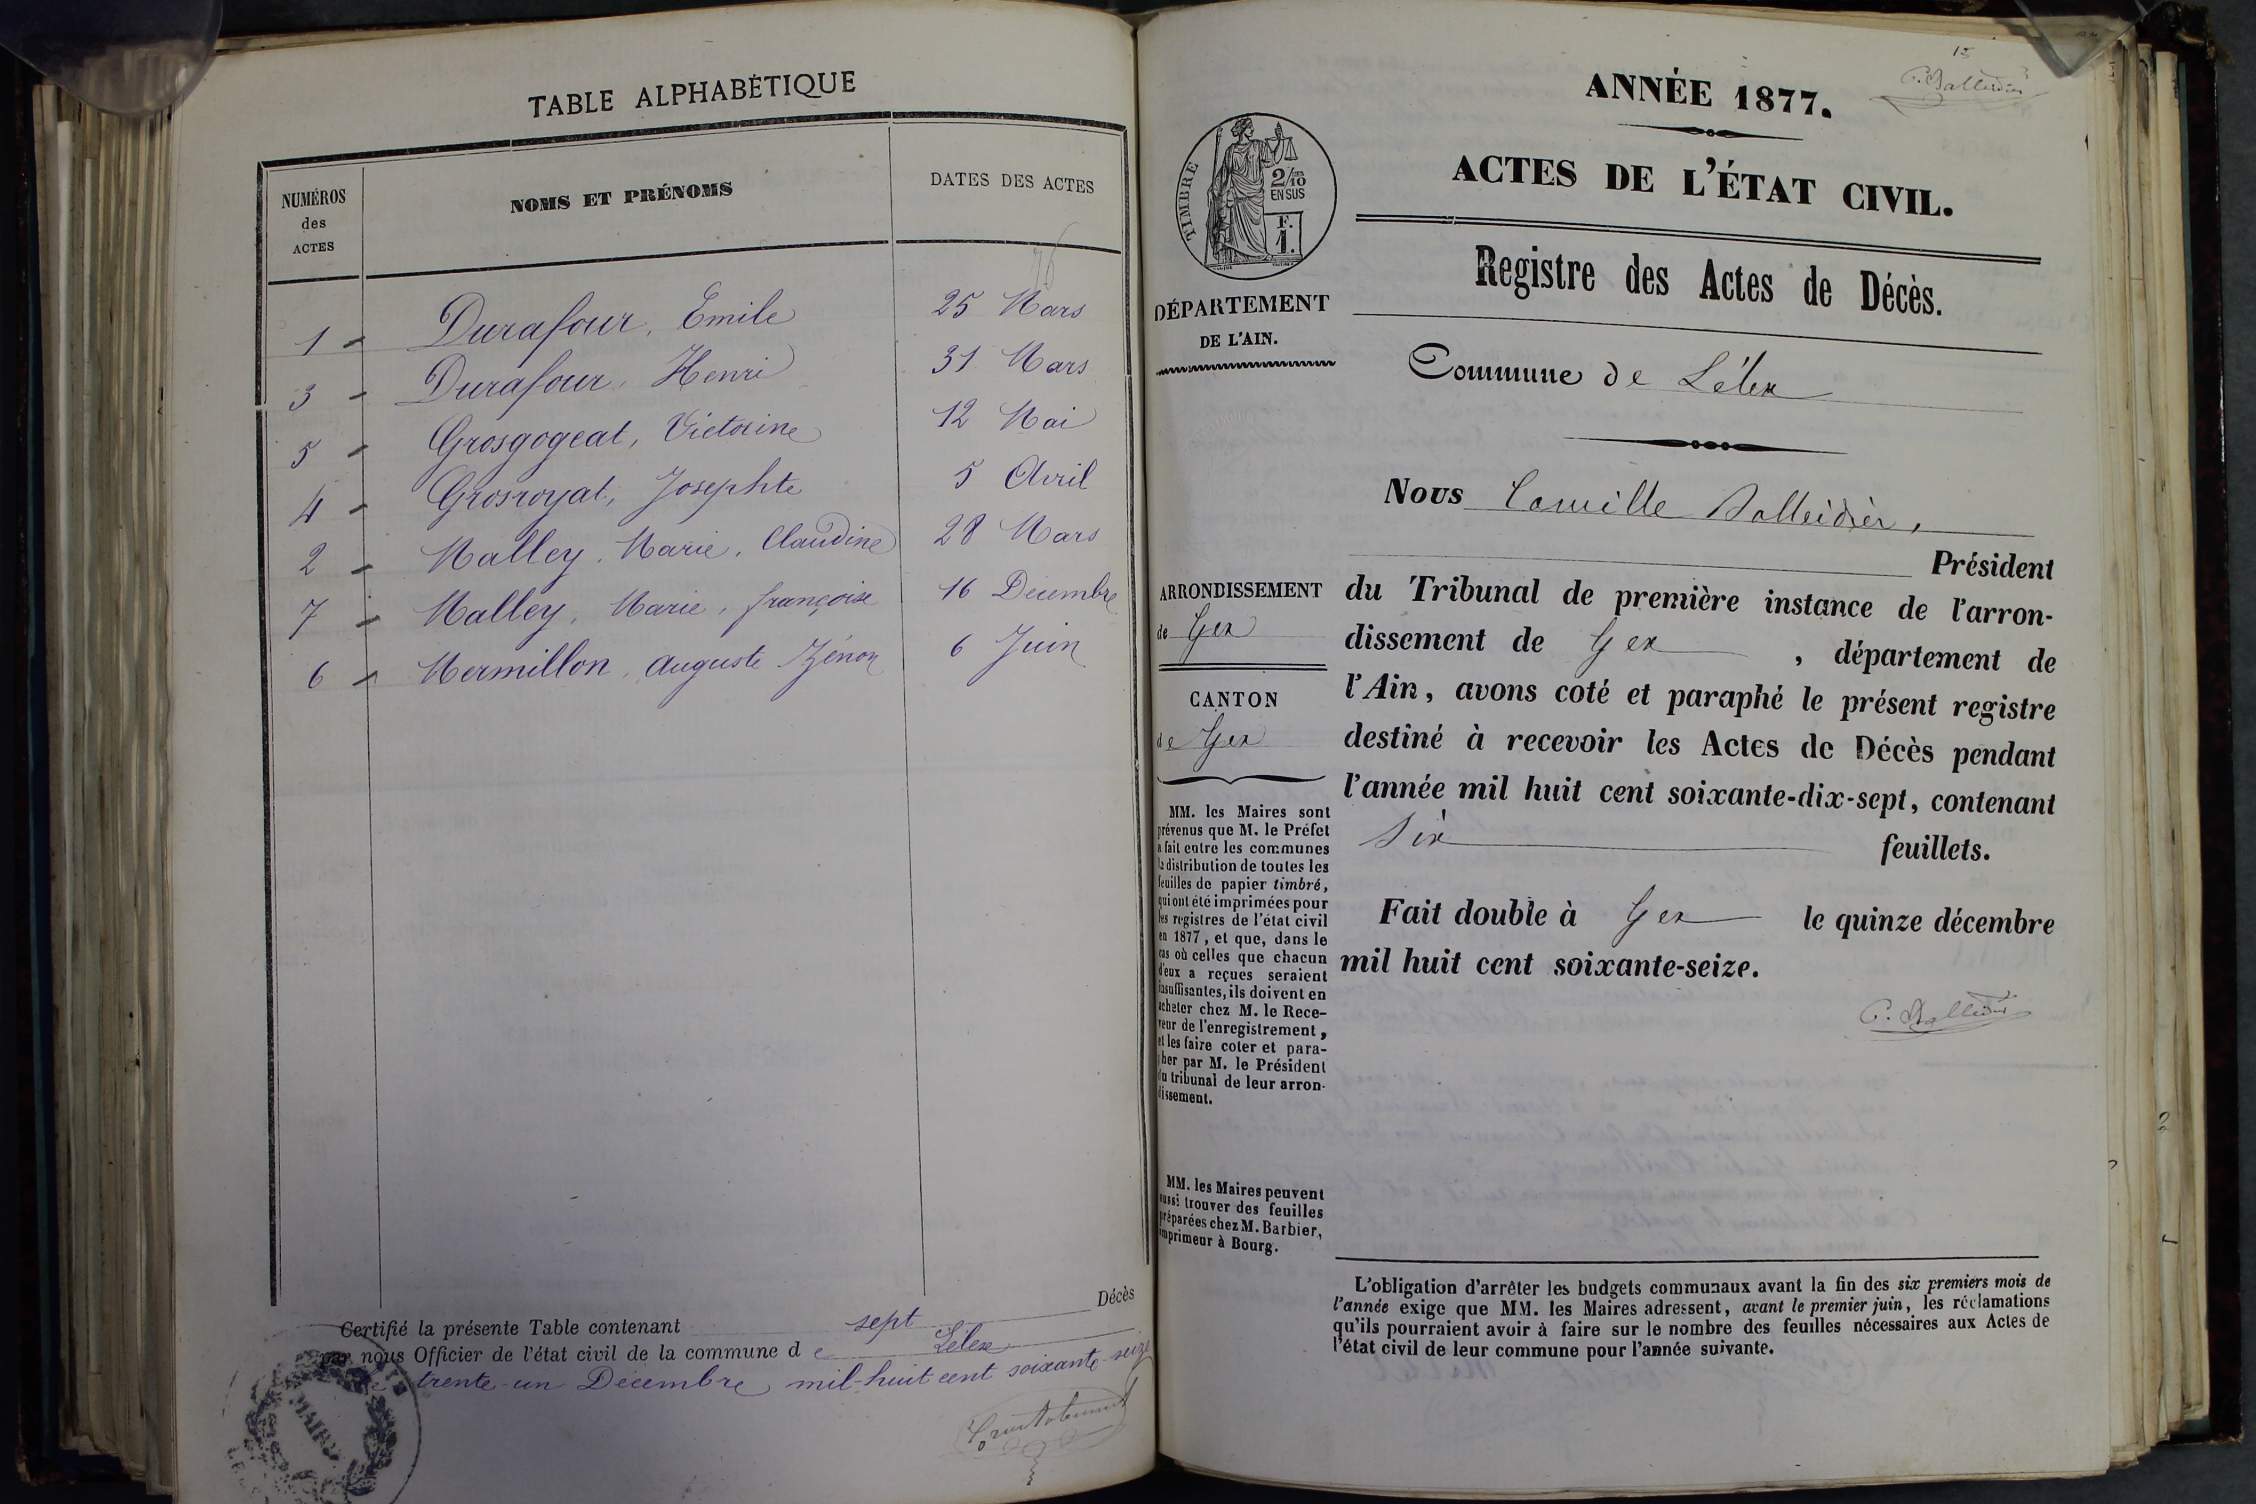 TABLE ALPHABÉTIQUE
NUMÉROS
des
ACTES
NOMS ET PRÉNOMS
DATES DES ACTES
76
1 - Durafour, Emile 25 Mars
3 - Durafour, Henri 31 Mars
5 - Grosgogeat, Victorine 12 Mai
4 - Grosroyat, Josephte 5 Avril
2 - Malley, Marie, Claudine 28 Mars
7 - Malley, Marie, françoise 16 Décembre
6 - Mermillon, Auguste Zénon 6 Juin
Certifié la présente Table contenant sept Décès
par nous Officier de l'état civil de la commune de Lélex
le trente-un Décembre mil-huit cent soixante-seize
MAIRIE
15
ANNÉE 1877.
ACTES DE L'ÉTAT CIVIL.
Registre des Actes de Décès.
TIMBRE
2/10
EN SUS
F.
1.
DÉPARTEMENT
DE L'AIN.
Commune de Lélex
Nous Camille
Président
du Tribunal de première instance de l'arron-
dissement de Gex, département de
l'Ain, avons coté et paraphé le présent registre
destiné à recevoir les Actes de Décès pendant
l'année mil huit cent soixante-dix-sept, contenant
Six feuillets.
Fait double à Gex le quinze décembre
mil huit cent soixante-seize.
ARRONDISSEMENT
de Gex
CANTON
de Gex
MM. les Maires sont
prévenus que M. le Préfet
a fait entre les communes
la distribution de toutes les
feuilles de papier timbré,
qui ont été imprimées pour
les registres de l'état civil
en 1877, et que, dans le
cas où celles que chacun
d'eux a reçues seraient
insuffisantes, ils doivent en
acheter chez M. le Rece-
veur de l'enregistrement,
et les faire coter et para-
pher par M. le Président
du tribunal de leur arron-
dissement.
MM. les Maires peuvent
aussi trouver des feuilles
préparées chez M. Barbier,
imprimeur à Bourg.
L'obligation d'arrêter les budgets communaux avant la fin des six premiers mois de
l'année exige que MM. les Maires adressent, avant le premier juin, les réclamations
qu'ils pourraient avoir à faire sur le nombre des feuilles nécessaires aux Actes de
l'état civil de leur commune pour l'année suivante.